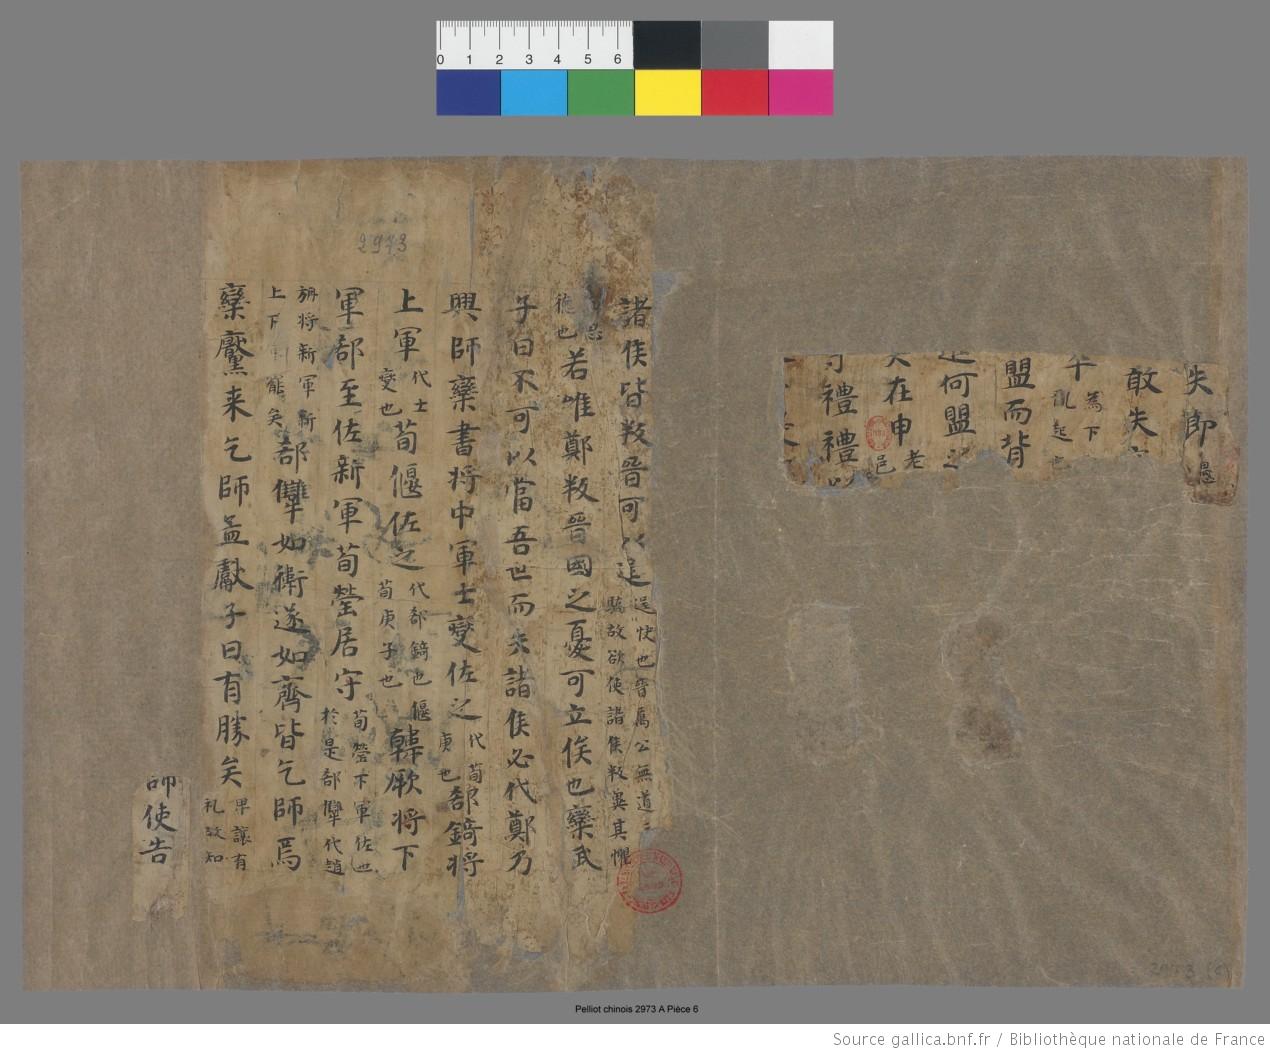 0 1 2 3 4 5 6
失節
敢失
為下
亂起
盟而背
何盟之
在申
老
邑
禮禮
諸侯皆叛晉可以逞
逞快也晉厲公無道三
駱故欲使諸侯叛冀其懼
思
德也
若唯鄭叛晉國之憂可立俟也欒武
子曰不可以當吾世而失諸侯必代鄭乃
興師欒書将中軍士燮佐之
代荀
庚也
郤錡将
上軍
代士
燮也
荀偃佐之
代郤錡也偃
荀庚子也
韓厥将下
軍郤至佐新軍荀瑩居守
荀瑩下軍佐也
於是郤犨代趙
旃将新軍新
上下軍罷矣
郤犨如衛遂如齊皆乞師焉
欒黶来乞師孟獻子曰有勝矣
卑讓有
礼故知
師使告
2973
2973 (6)
Pelliot chinois 2973 A Pièce 6
Source gallica.bnf.fr / Bibliothèque nationale de France